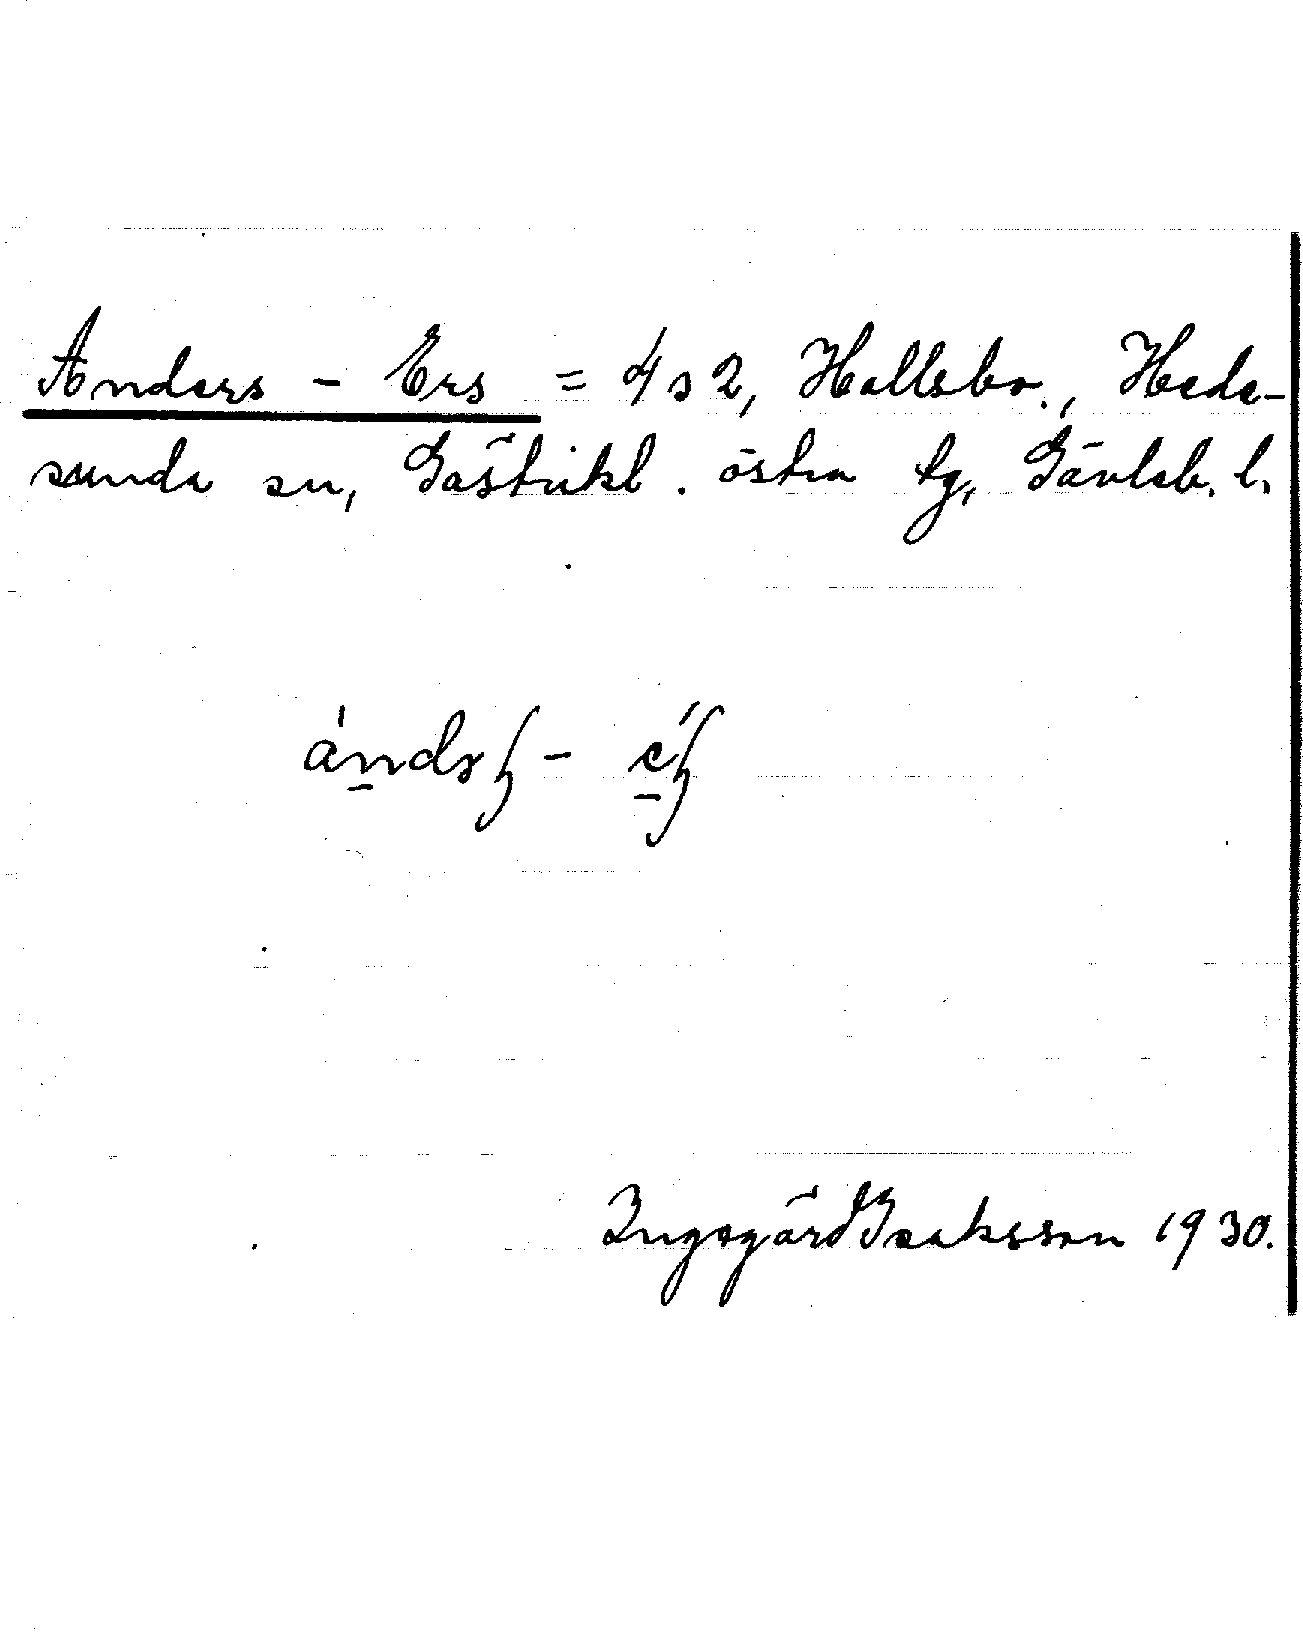 Anders - Ers = 4 s 2, Hallsbo., Hede-
sunda sn, Gästrikl. östra tg, Gävleb. l.
Ingegärd Isaksson 1930.